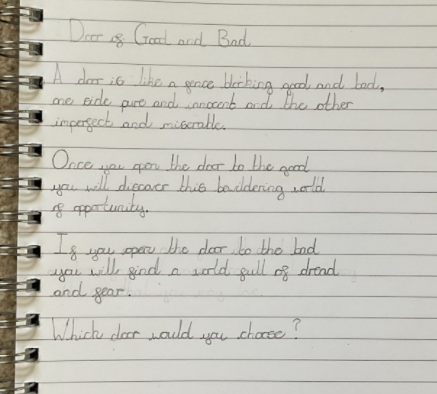 Door of Good and Bad
A door is like a fence blocking good and bad,
one side pure and innocent and the other
imperfect and miserable.
Once you open the door to the good
you will discover this bewildering world
of opportunity.
If you open the door to the bad
you will find a world full of dread
and fear.
Which door would you choose?